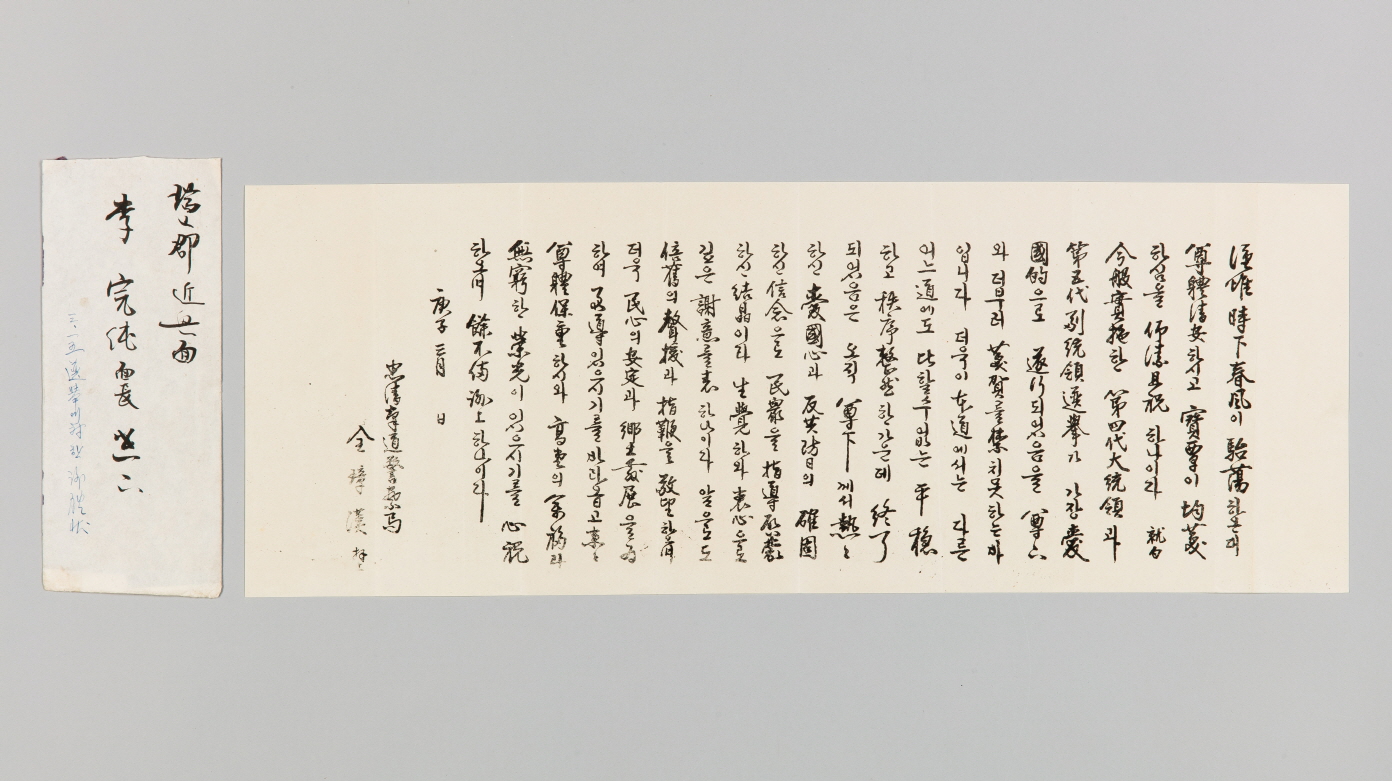 謹堆時下春風이 駘蕩하온데
尊體淸安하시고 寶覃이 均茂
하심을 仰溸且祝 하나이다 就白
今般實施한 第四代大統領과
第五代副統領選擧가 가장 愛
國的으로 遂行되었음을 尊下
와 더부러 慶賀를 禁치못하는바
입니다 더욱이 本道에서는 다른
어느道에도 比할수없는 平穩
하고 秩序整然한가운데 終了
되었음은 오직 尊下께서 熱々
하신 愛國心과 反共防日의 確固
하신 信念을 民衆을 指導啓蒙
하신 結晶이라 生覺하와 衷心으로
깊은 謝意를 表하나이다 앞으로도
倍舊의 聲援과 指鞭을 敬望하오며
더욱 民心의 安定과 鄕土發展을 爲
하여 善導있으시기를 바라옵고 稟々
尊體保重하시와 高堂의 余福과
無窮한 榮光이 있으시기를 心祝
하오며 餘不備謹上하나이다
庚子 三月 日
忠淸南道警察局
李 完純 面長 座下
瑞山郡 近興面